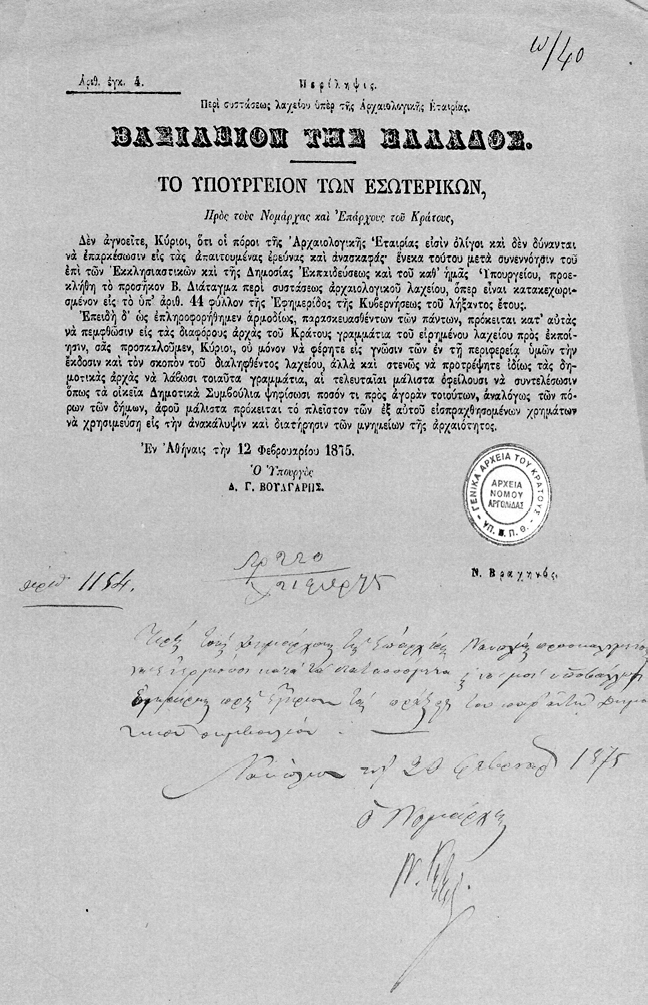 ω/40
Ἀριθ. ἐγκ. 4.
Περίληψις.
Περὶ συστάσεως λαχείου ὑπὲρ τῆς Ἀρχαιολογικῆς Ἑταιρίας.
ΒΑΣΙΛΕΙΟΝ ΤΗΣ ΕΛΛΑΔΟΣ.
ΤΟ ΥΠΟΥΡΓΕΙΟΝ ΤΩΝ ΕΣΩΤΕΡΙΚΩΝ,
Πρὸς τοὺς Νομάρχας καὶ Ἐπάρχους τοῦ Κράτους,
Δὲν ἀγνοεῖτε, Κύριοι, ὅτι οἱ πόροι τῆς Ἀρχαιολογικῆς Ἑταιρίας εἰσὶν ὀλίγοι καὶ δὲν δύνανται
νὰ ἐπαρκέσωσιν εἰς τὰς ἀπαιτουμένας ἐρεύνας καὶ ἀνασκαφάς· ἕνεκα τούτου μετὰ συνεννόησιν τοῦ
ἐπὶ τῶν Ἐκκλησιαστικῶν καὶ τῆς Δημοσίας Ἐκπαιδεύσεως καὶ τοῦ καθ' ἡμᾶς Ὑπουργείου, προε-
κλήθη τὸ προσῆκον Β. Διάταγμα περὶ συστάσεως ἀρχαιολογικοῦ λαχείου, ὅπερ εἶναι κατακεχωρι-
σμένον εἰς τὸ ὑπ' ἀριθ. 44 φύλλον τῆς Ἐφημερίδος τῆς Κυβερνήσεως τοῦ λήξαντος ἔτους.
Ἐπειδὴ δ' ὡς ἐπληροφορήθημεν ἁρμοδίως, παρασκευασθέντων τῶν πάντων, πρόκειται κατ' αὐτὰς
νὰ πεμφθῶσιν εἰς τὰς διαφόρους ἀρχὰς τοῦ Κράτους γραμμάτια τοῦ εἰρημένου λαχείου πρὸς ἐκποί-
ησιν, σᾶς προσκαλοῦμεν, Κύριοι, οὐ μόνον νὰ φέρητε εἰς γνῶσιν τῶν ἐν τῇ περιφερείᾳ ὑμῶν τὴν
ἔκδοσιν καὶ τὸν σκοπὸν τοῦ διαληφθέντος λαχείου, ἀλλὰ καὶ στενῶς νὰ προτρέψητε ἰδίως τὰς δη-
μοτικὰς ἀρχὰς νὰ λάβωσι τοιαῦτα γραμμάτια, αἱ τελευταῖαι μάλιστα ὀφείλουσι νὰ συντελέσωσιν
ὅπως τὰ οἰκεῖα Δημοτικὰ Συμβούλια ψηφίσωσι ποσόν τι πρὸς ἀγορὰν τοιούτων, ἀναλόγως τῶν πό-
ρων τῶν δήμων, ἀφοῦ μάλιστα πρόκειται τὸ πλεῖστον τῶν ἐξ αὐτοῦ εἰσπραχθησομένων χρημάτων
νὰ χρησιμεύσῃ εἰς τὴν ἀνακάλυψιν καὶ διατήρησιν τῶν μνημείων τῆς ἀρχαιότητος.
Ἐν Ἀθήναις τὴν 12 Φεβρουαρίου 1875.
Ὁ Ὑπουργὸς
Δ. Γ. ΒΟΥΛΓΑΡΗΣ.
ΓΕΝΙΚΑ ΑΡΧΕΙΑ ΤΟΥ ΚΡΑΤΟΥΣ
ΑΡΧΕΙΑ
ΝΟΜΟΥ
ΑΡΓΟΛΙΔΑΣ
ΥΠ. Ε. Π. Θ.
Ν. Βραχηνός.
ἀριθ 1154.
Πρὸς τοὺς Δημάρχους τῆς Ἐπαρχίας Ναυπλίας
κατὰ τὰ διατασσόμενα
Ναύπλιον τῇ 20 1875
ὁ Νομάρχης